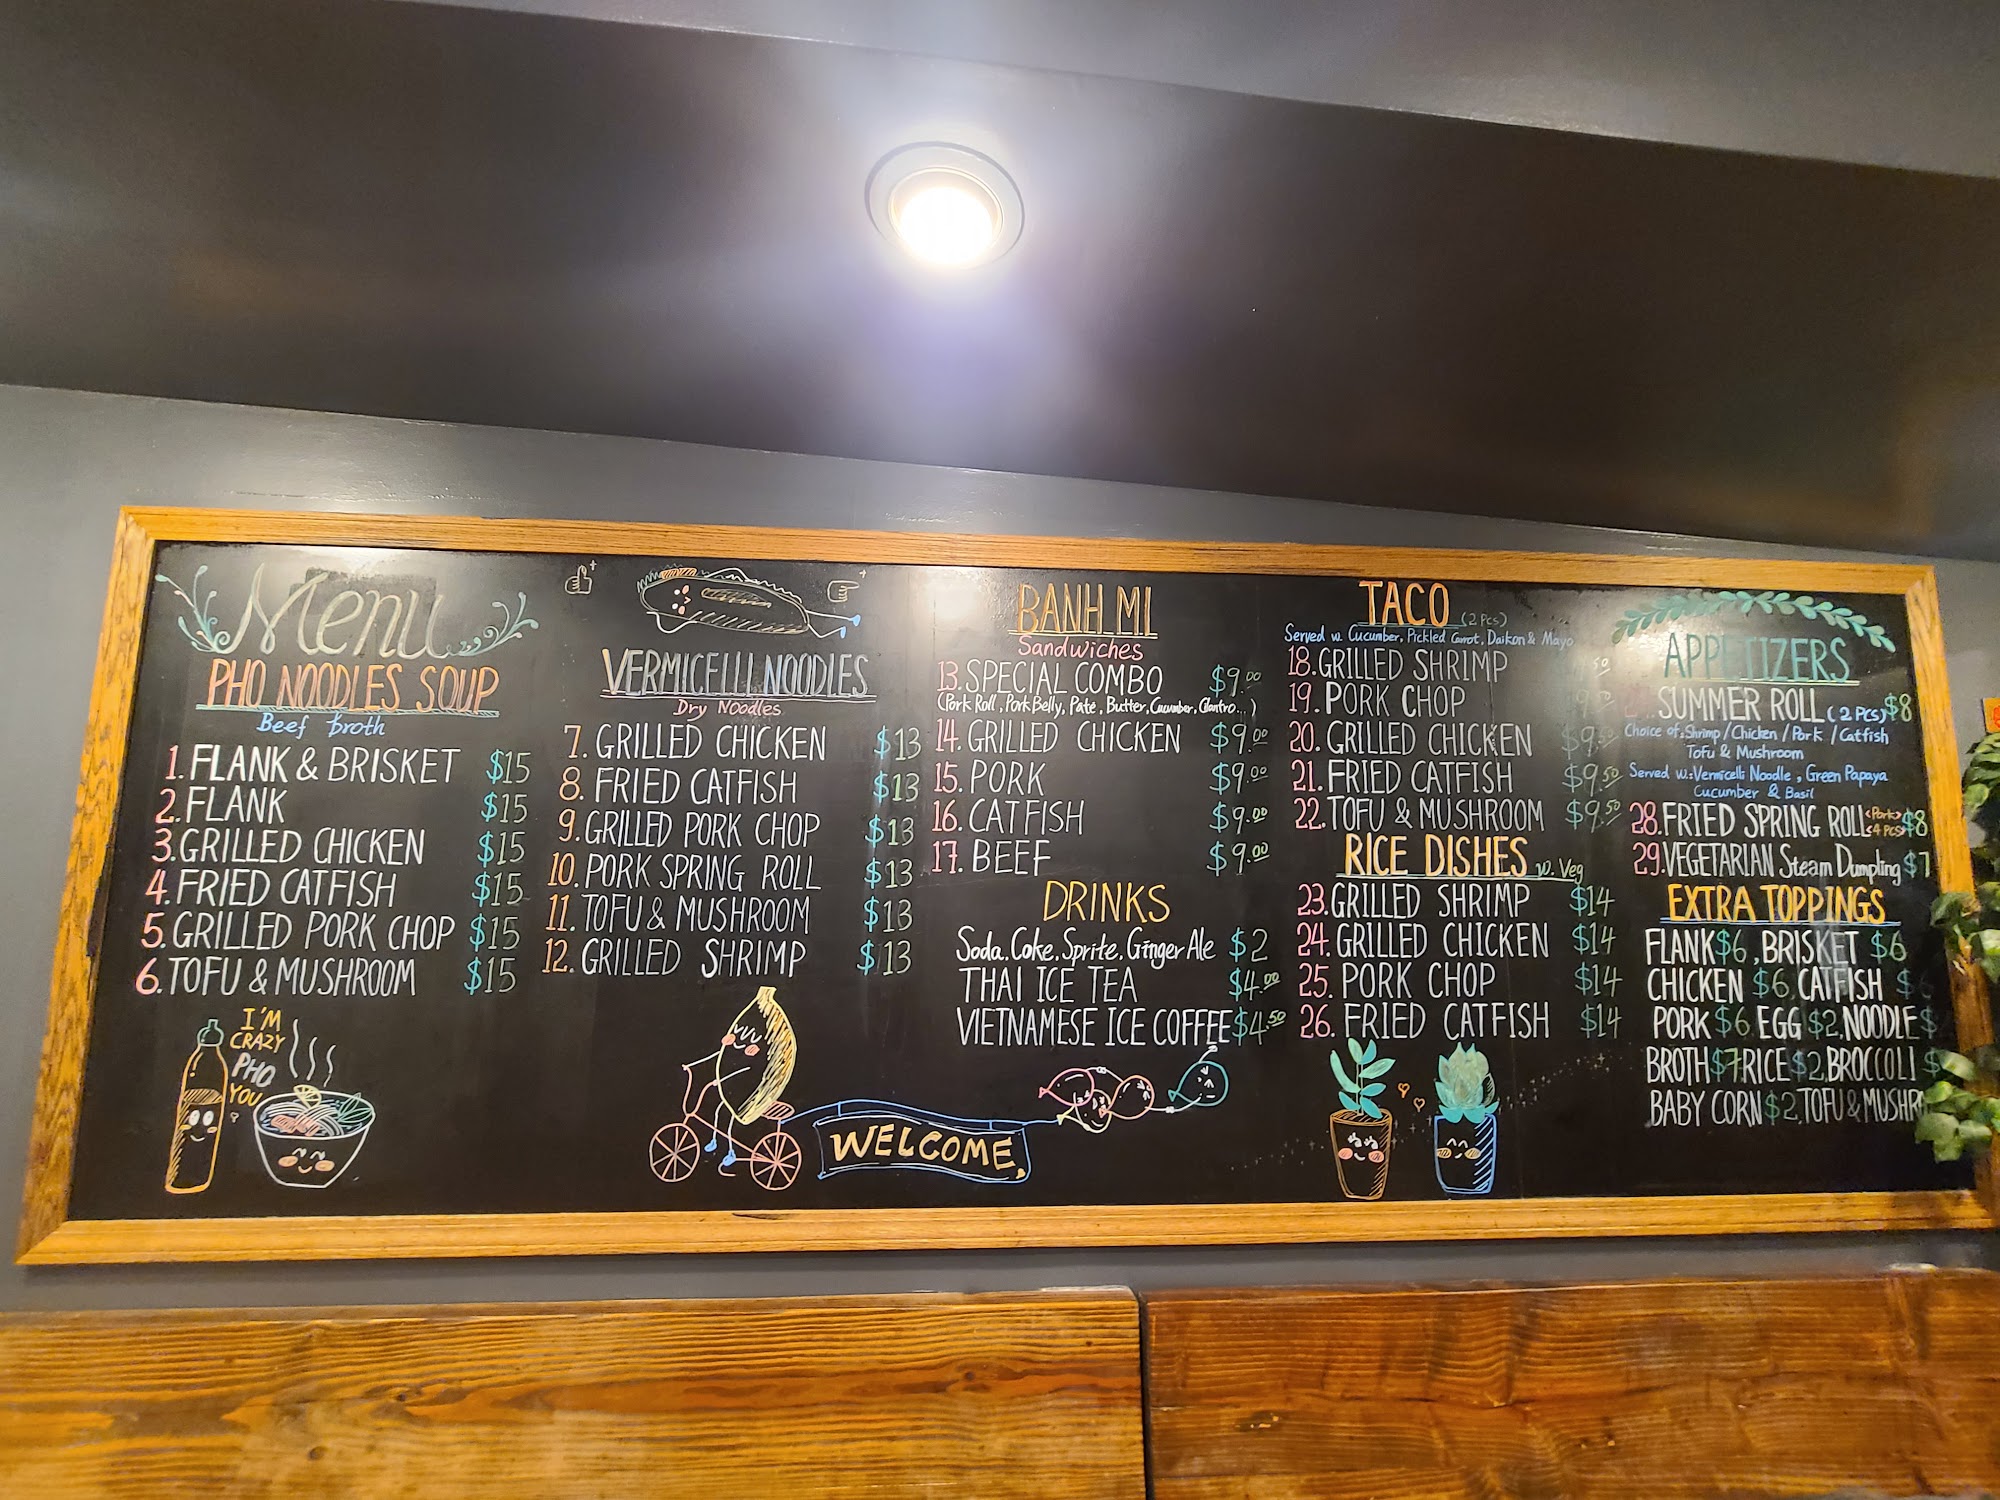 Menu
PHO NOODLES SOUP
Beef broth
1. FLANK & BRISKET $15
2. FLANK $15
3. GRILLED CHICKEN $15
4. FRIED CATFISH $15
5. GRILLED PORK CHOP $15
6. TOFU & MUSHROOM $15
I'M
CRAZY
PHO
YOU
VERMICELLI NOODLES
Dry Noodles
7. GRILLED CHICKEN $13
8. FRIED CATFISH $13
9. GRILLED PORK CHOP $13
10. PORK SPRING ROLL $13
11. TOFU & MUSHROOM $13
12. GRILLED SHRIMP $13
WELCOME
BANH MI
Sandwiches
13. SPECIAL COMBO $9.00
(Pork Roll, Pork Belly, Pate, Butter, Cucumber, Cilantro...)
14. GRILLED CHICKEN $9.00
15. PORK $9.00
16. CATFISH $9.00
17. BEEF $9.00
DRINKS
Soda, Coke, Sprite, Ginger Ale $2
THAI ICE TEA $4.00
VIETNAMESE ICE COFFEE $4.50
TACO (2 Pcs)
Served w. Cucumber, Pickled Carrot, Daikon & Mayo
18. GRILLED SHRIMP
19. PORK CHOP
20. GRILLED CHICKEN $9.50
21. FRIED CATFISH $9.50
22. TOFU & MUSHROOM $9.50
RICE DISHES w. Veg
23. GRILLED SHRIMP $14
24. GRILLED CHICKEN $14
25. PORK CHOP $14
26. FRIED CATFISH $14
APPETIZERS
SUMMER ROLL (2 PCS) $8
Choice of: Shrimp / Chicken / Pork / Catfish
Tofu & Mushroom
Served w: Vermicelli Noodle, Green Papaya
Cucumber & Basil
28. FRIED SPRING ROLL <Pork> <4 PCS> $8
29. VEGETARIAN Steam Dumpling $7
EXTRA TOPPINGS
FLANK $6, BRISKET $6
CHICKEN $6, CATFISH $6
PORK $6, EGG $2, NOODLE $
BROTH $7, RICE $2, BROCCOLI $
BABY CORN $2, TOFU &